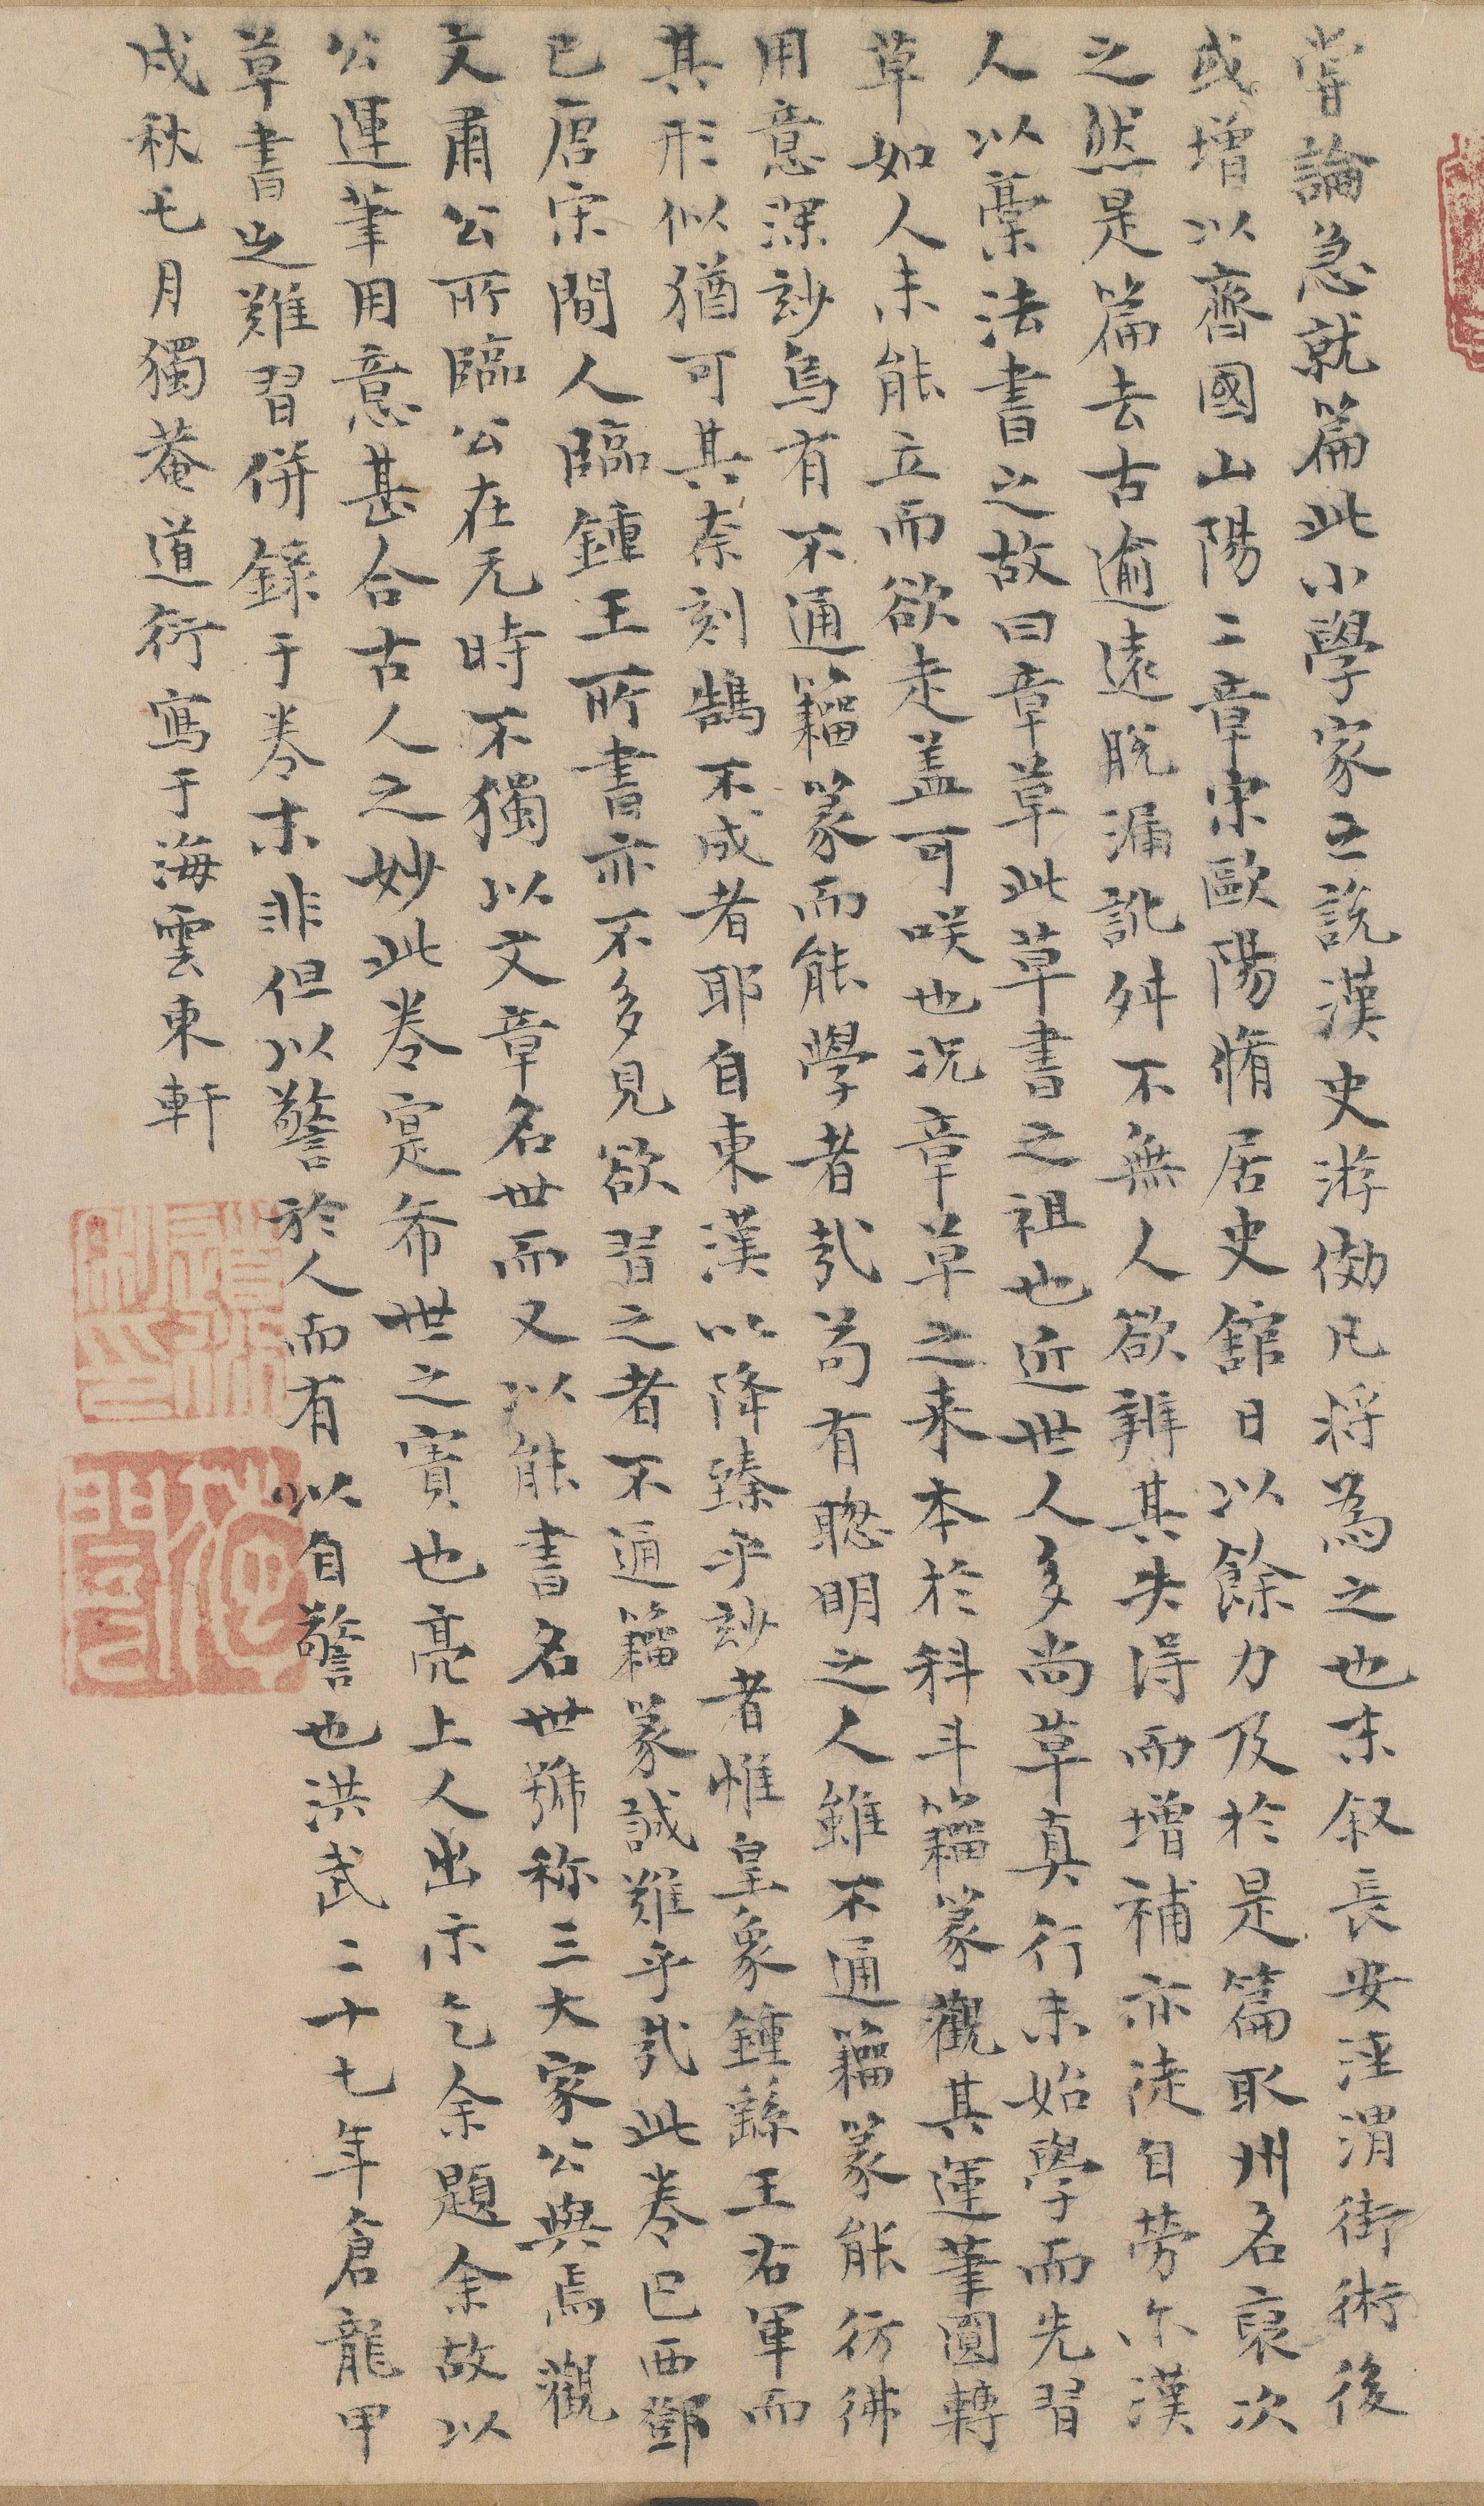 嘗論急就篇此小學家之說漢史游傚凡将為之也末叙長安涇渭街術後
或增以齊國山陽二章宋歐陽脩居史館日以餘力及於是篇取州名裒次
之然是篇去古逾遠脫漏訛舛不無人欲辨其失得而增補亦徒自勞尓漢
人以藁法書之故曰章草此草書之祖也近世人多尚草真行未始學而先習
草如人未能立而欲走盖可咲也况章草之来本於科斗籀篆觀其運筆圓轉
用意深玅烏有不通籀篆而能學者㢤苟有聦明之人雖不通籀篆能彷彿
其形似猶可其柰刻鵠不成者耶自東漢以降臻乎玅者惟皇象鍾繇王右軍而
已唐宋間人臨鍾王所書亦不多見欲習之者不通籀篆誠難乎㢤此卷巴西鄧
文肅公所臨公在元時不獨以文章名世而又以能書名世號称三大家公與焉觀
公運筆用意甚合古人之妙此卷寔希世之寶也亮上人出示乞余題余故以
草書之難習併録于卷末非但以警於人而有以自警也洪武二十七年倉龍甲
戌秋七月獨菴道衍寫于海雲東軒